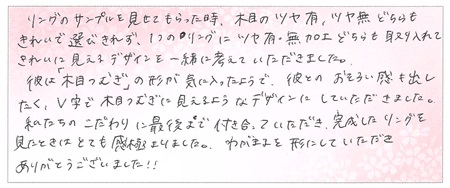 リングのサンプルを見せてもらった時、木目のツヤ有、ツヤ無どちらも
きれいで選びきれず、1つのリングにツヤ有・無加工どちらも取り入れて
きれいに見えるデザインを一緒に考えていただきました。
彼は「木目つむぎ」の形が気に入ったようで、彼とのおそろい感も出し
たく、V字で木目つむぎに見えるようなデザインにしていただきました。
私たちのこだわりに最後まで付き合っていただき、完成したリングを
見たときはとても感極まりました。わがままを形にしていただき
ありがとうございました!!